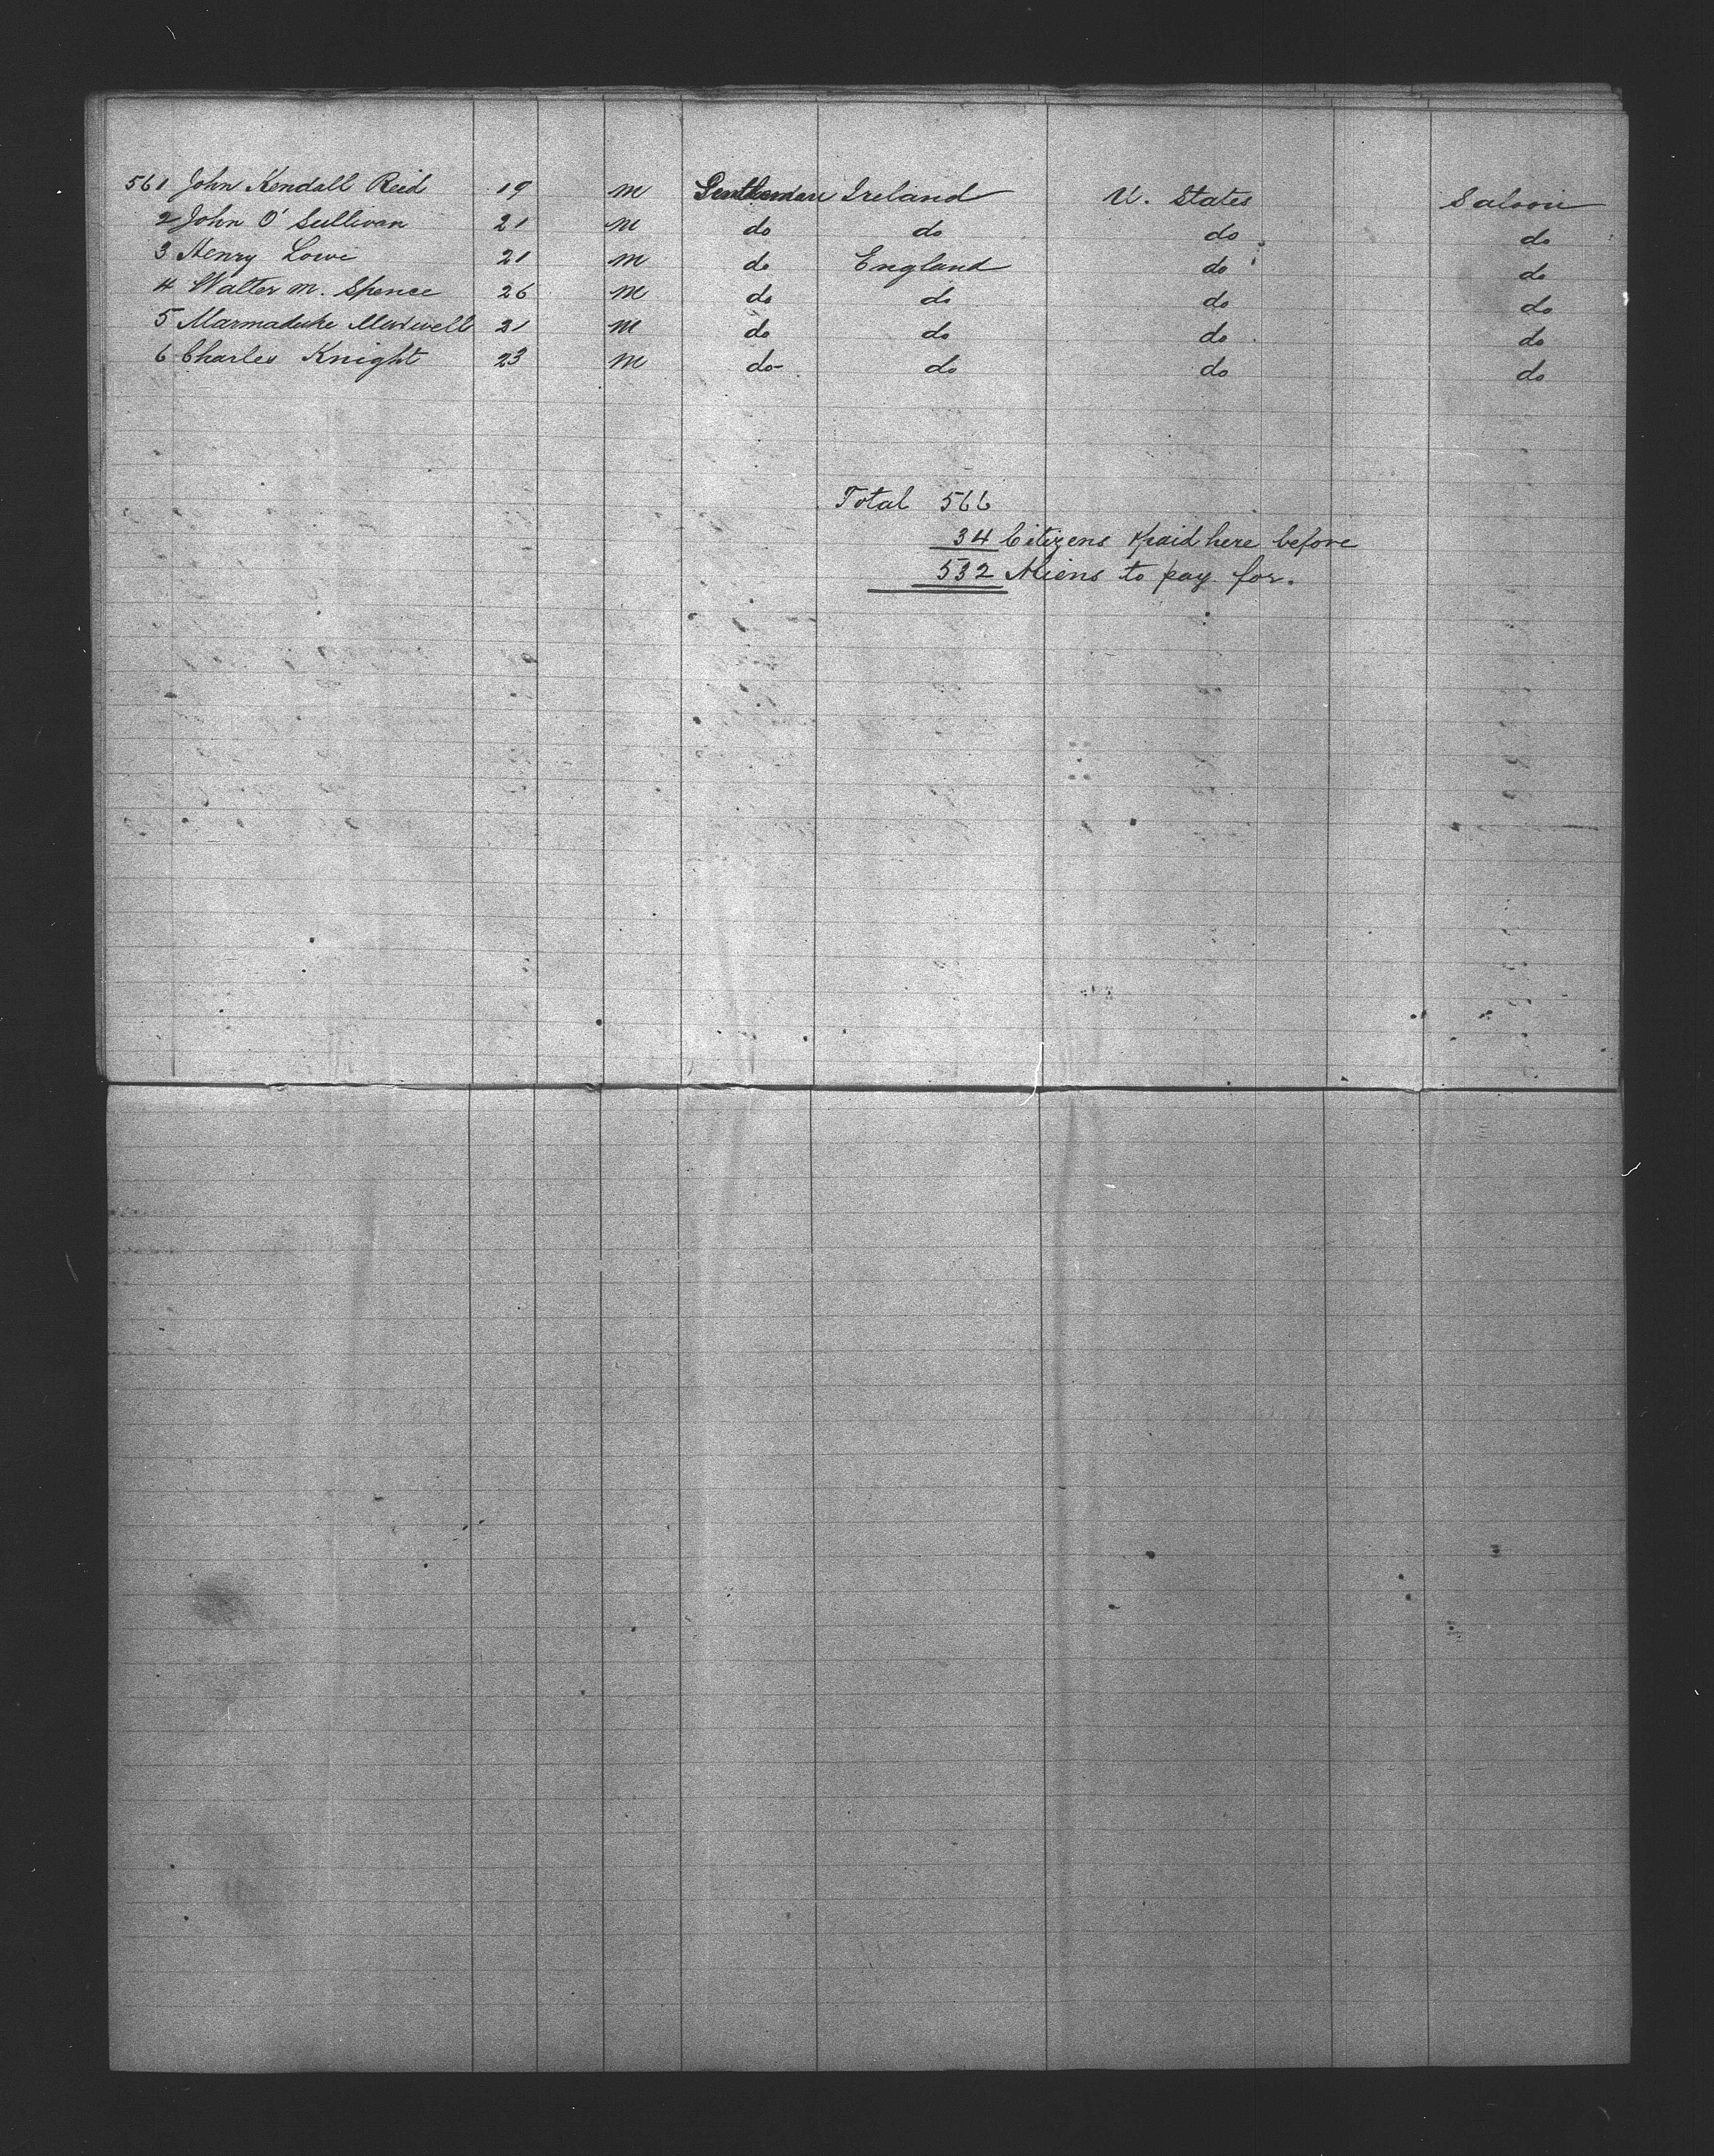 561 John Kendall Reid 19 m Gentleman Ireland U. States Saloon
2 John O'Sullivan 21 m do do do do
3 Henry Lowe 21 m do England do do
4 Walter M. Spence 26 m do do do do
5 Marmaduke 21 m do do do do
6 Charles Knight 23 m do do do do
Total 566
34 Citizens & paid here before
532 Aliens to pay for.